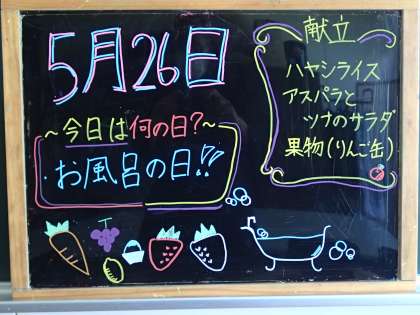 5月26日
～今日は何の日?～
お風呂の日!!
献立
ハヤシライス
アスパラと
ツナのサラダ
果物(りんご缶)